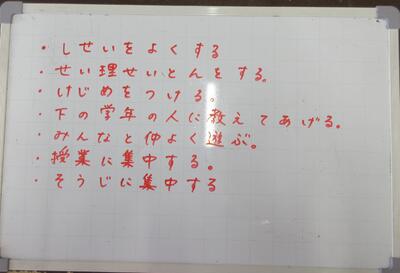 ・しせいをよくする
・せい理せいとんをする。
・けじめをつける。
・下の学年の人に教えてあげる。
・みんなと仲よく遊ぶ。
・授業に集中する。
・そうじに集中する